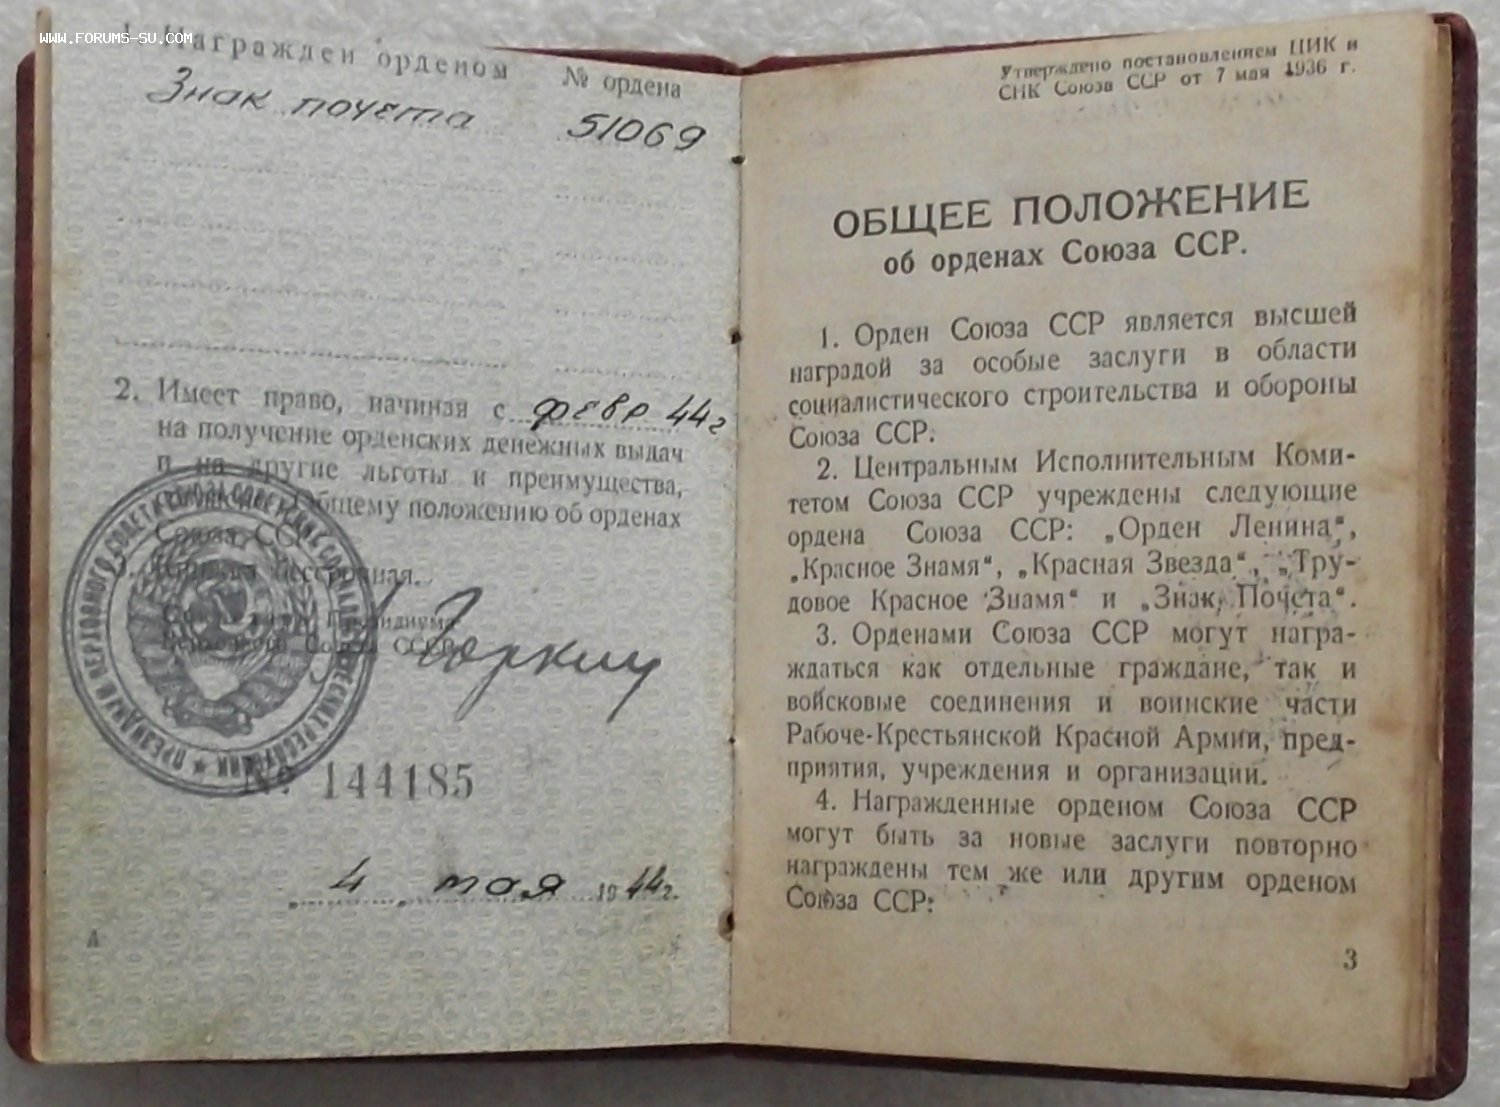 www.forums-su.com
1. Награжден орденом № ордена
Знак почета 51069
2. Имеет право, начиная с февр 44г
на получение орденских денежных выдач
и на другие льготы и преимущества,
Общему положению об орденах
Союза ССР
бессрочная.
Президиума
Союза ССР
Горкин
№ 144185
4 мая 1944г.
А
Утверждено постановлением ЦИК и
СНК Союза ССР от 7 мая 1936 г.
ОБЩЕЕ ПОЛОЖЕНИЕ
об орденах Союза ССР.
1. Орден Союза ССР является высшей
наградой за особые заслуги в области
социалистического строительства и обороны
Союза ССР.
2. Центральным Исполнительным Коми-
тетом Союза ССР учреждены следующие
ордена Союза ССР: „Орден Ленина“,
„Красное Знамя“, „Красная Звезда“, „Тру-
довое Красное Знамя“ и „Знак Почета“.
3. Орденами Союза ССР могут награ-
ждаться как отдельные граждане, так и
войсковые соединения и воинские части
Рабоче-Крестьянской Красной Армии, пред-
приятия, учреждения и организации.
4. Награжденные орденом Союза ССР
могут быть за новые заслуги повторно
награждены тем же или другим орденом
Союза ССР:
3